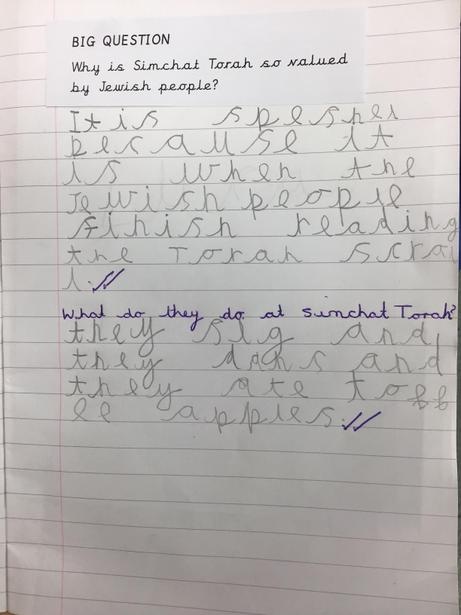 BIG QUESTION
Why is Simchat Torah so valued
by Jewish people?
It is speshel
because it
is when the
Jewish people
finish reading
the Torah scrol
l.
What do they do at Simchat Torah?
they sig and
they dahs and
they ate toff
ee apples.